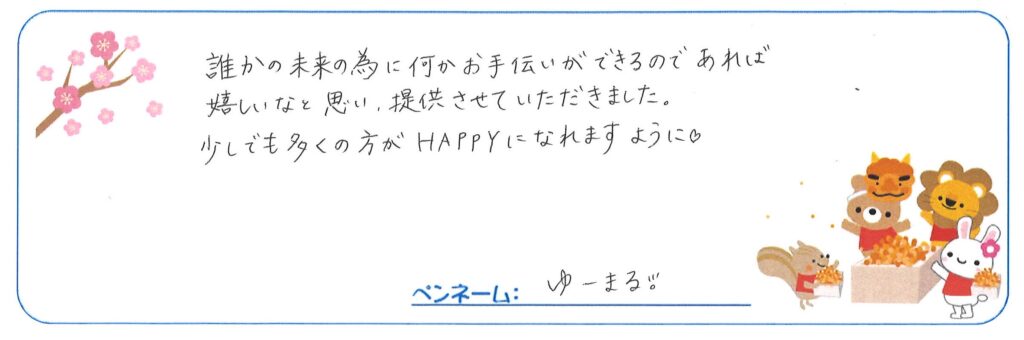 誰かの未来の為に何かお手伝いができるのであれば
嬉しいなと思い、提供させていただきました。
少しでも多くの方がHAPPYになれますように♡
ペンネーム: ゆーまる!!